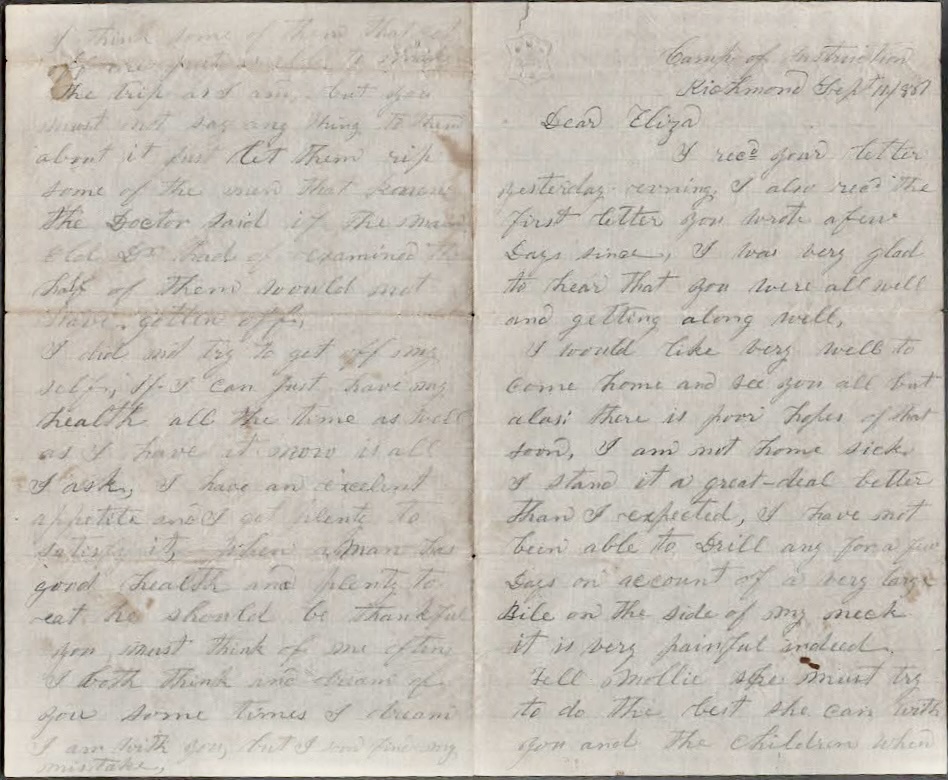 Camp of Instruction
Richmond Sept
Dear Eliza
I recd your letter
yesterday evning, I also recd the
first letter you wrote a few
Days since, I was very glad
to hear that you were all well
and getting along well,
I would like very well to
come home and see you all but
alas; there is poor hopes of that
soon, I am not home sick
I stand it a great-deal better
than I expected, I have not
been able to Drill any for a few
Days on account of a very large
Bile on the side of my neck
it is very painful indeed.
Tell Mollie she must try
to do the best she can with
you and the children when
I think some of them that got
off were just as able to
the trip as I am, but you
must not say any thing to them
about it just let them rip
some of the men that
the Doctor said if the
Old Dr had of examined
half of them would not
have gotten off,
I did not try to get off my
self, if I can just have my
health all the time as well
as I have it now is all
I ask, I have an excelent
appetite and I get plenty to
satisfy it, When a man has
good health and plenty to
eat he should be thankful
you must think of me often
I both think and dream of
you some times I dream
I am with you, but I my
mistake,